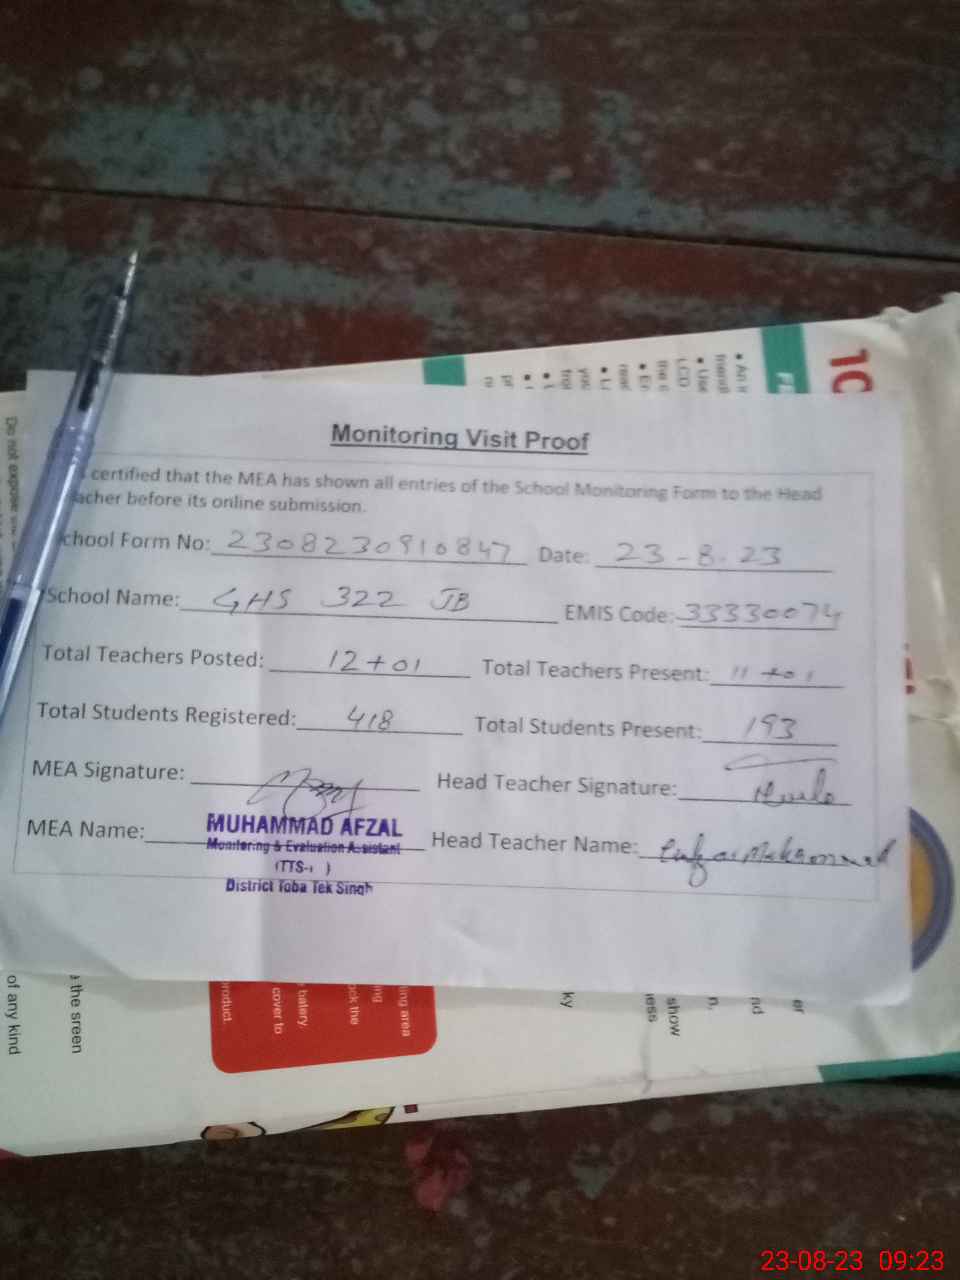 10
Monitoring Visit Proof
certified that the MEA has shown all entries of the School Monitoring Form to the Head
acher before its online submission.
chool Form No: 2308230910847 Date: 23-8-23
School Name: GHS 322 JB EMIS Code: 33330074
Total Teachers Posted: 12+01 Total Teachers Present: 11+01
Total Students Registered: 418 Total Students Present: 193
MEA Signature: Head Teacher Signature:
MEA Name: MUHAMMAD AFZAL Head Teacher Name:
Monitoring & Evaluation Assistant
(TTS- )
District Toba Tek Singh
Do not expose
of any kind
the sreen
product.
cover to
batery.
ock the
ing
ing area
ky
ess
show
n,
nd
er
23-08-23 09:23